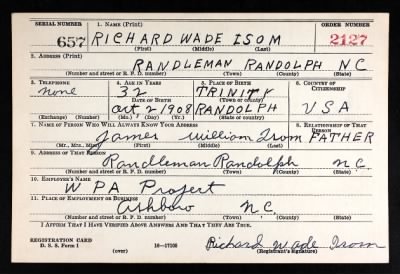 SERIAL NUMBER 1. NAME (Print) ORDER NUMBER
657 RICHARD WADE ISOM 2127
(First) (Middle) (Last)
2. ADDRESS (Print)
RANDLEMAN RANDOLPH NC
(Number and street or R. F. D. number) (Town) (County) (State)
3. TELEPHONE 4. AGE IN YEARS 5. PLACE OF BIRTH 6. COUNTRY OF CITIZENSHIP
none 32 TRINITY
DATE OF BIRTH (Town or county)
Oct 2 1908 RANDOLPH USA
(Exchange) (Number) (Mo.) (Day) (Yr.) (State or country)
7. NAME OF PERSON WHO WILL ALWAYS KNOW YOUR ADDRESS 8. RELATIONSHIP OF THAT PERSON
James William Isom FATHER
(Mr., Mrs., Miss) (First) (Middle) (Last)
9. ADDRESS OF THAT PERSON
Randleman Randolph N.C.
(Number and street or R. F. D. number) (Town) (County) (State)
10. EMPLOYER'S NAME
WPA Project
11. PLACE OF EMPLOYMENT OR BUSINESS
Ashboro N.C.
(Number and street or R. F. D. number) (Town) (County) (State)
I AFFIRM THAT I HAVE VERIFIED ABOVE ANSWERS AND THAT THEY ARE TRUE.
REGISTRATION CARD
D. S. S. Form 1 (over) 16—17105 Richard Wade Isom
(Registrant's signature)